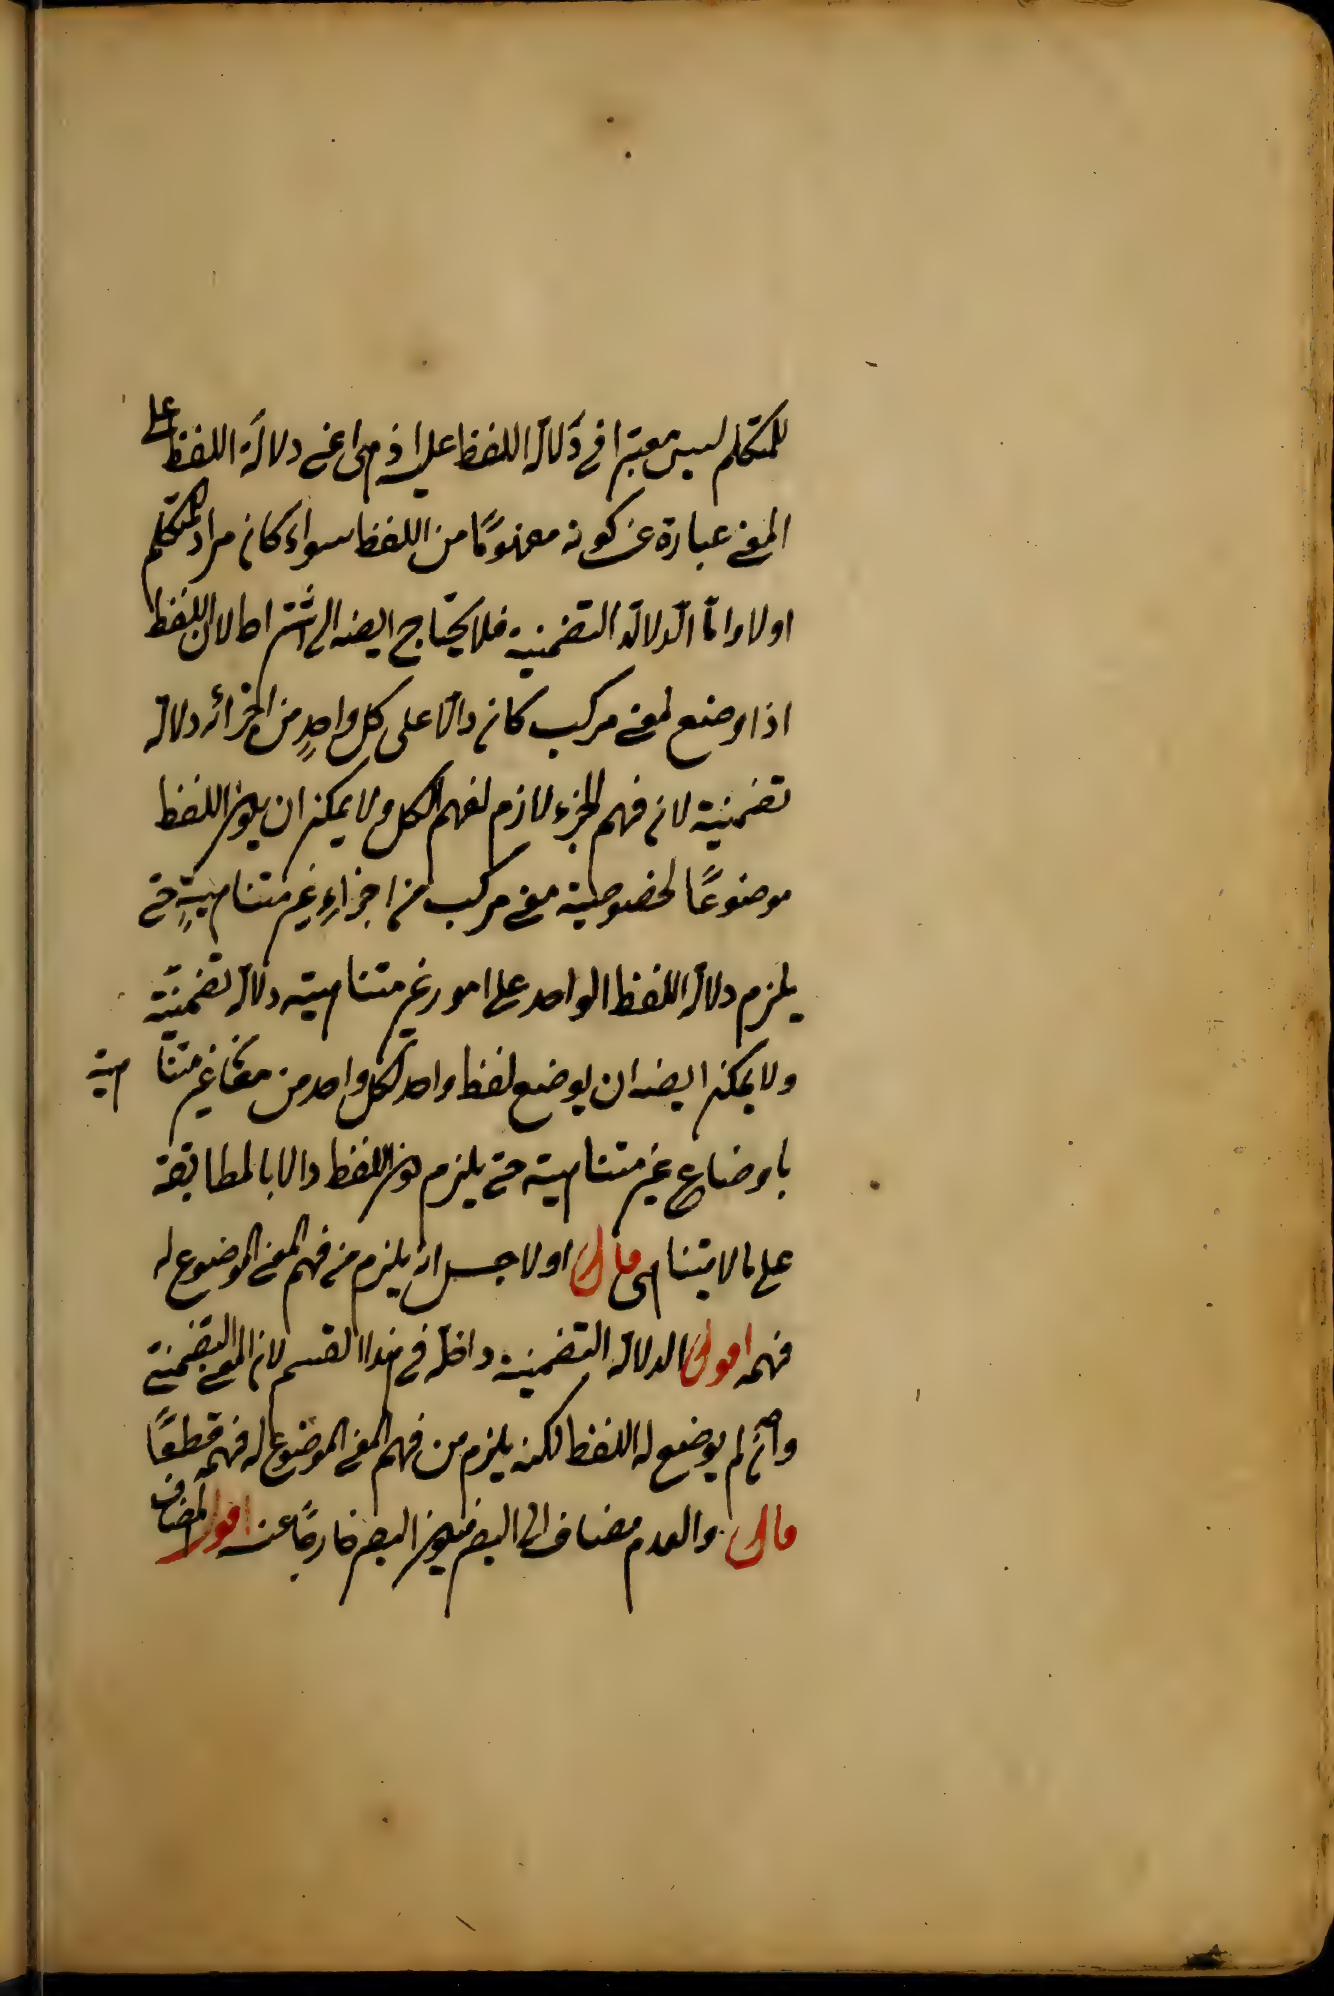 للمتكلم ليس معتبرا في دلالة اللفظ عليه اذ هي اعني دلالة اللفظ على
المعنى عبارة عن كونه مفهومًا من اللفظ سواء كان مراد المتكلم
اولا واما الدلالة التضمنية فلا يحتاج ايضا الى اشتراط لان اللفظ
اذا وضع لمعنى مركب كان دالّا على كل واحدٍ من اجزائه دلالة
تضمنية لان فهم الجزء لازم لفهم الكل ولا يمكن ان يكون اللفظ
موضوعًا لخصوصية معنى مركب من اجزاءٍ غير متناهيةٍ حتى
يلزم دلالة اللفظ الواحد على امور غير متناهية دلالة تضمنيّة
ولا يمكن ايضا ان يوضع لفظ واحد لكل واحد من معان غير متناهية
باوضاع غير متناهية حتى يلزم كون اللفظ دالا بالمطابقة
على ما لا يتناهى قال اولا جل ان يلزم من فهم المعنى الموضوع له
فهمه اقول الدلالة التضمنية داخلة في هذا القسم لان المعنى التضمني
وان لم يوضع له اللفظ لكنه يلزم من فهم المعنى الموضوع له فهمه قطعًا
قال والعدم مضاف الى البصر فيكون البصر خارجًا عنه اقول المضاف